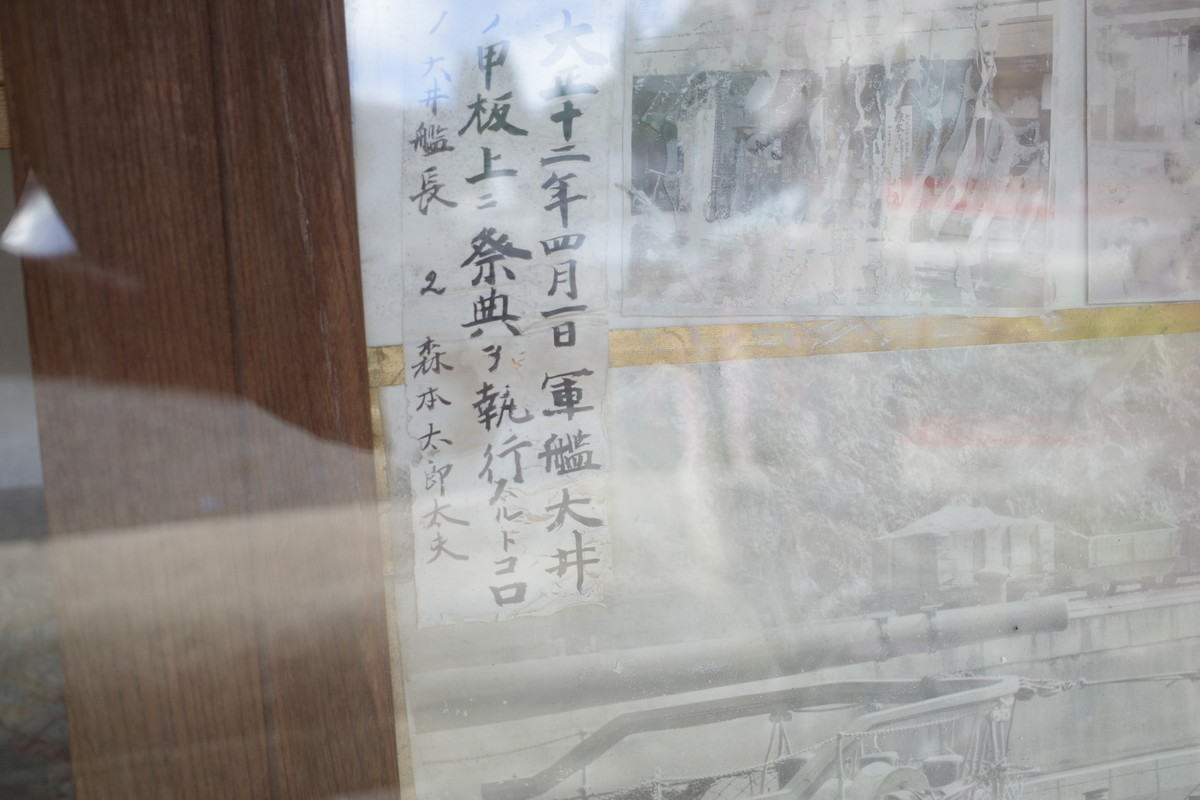 大正十二年四月一日 軍艦大井
ノ甲板上ニ祭典ヲ執行
トコロ
ノ大井艦長 2 森本太郎太夫